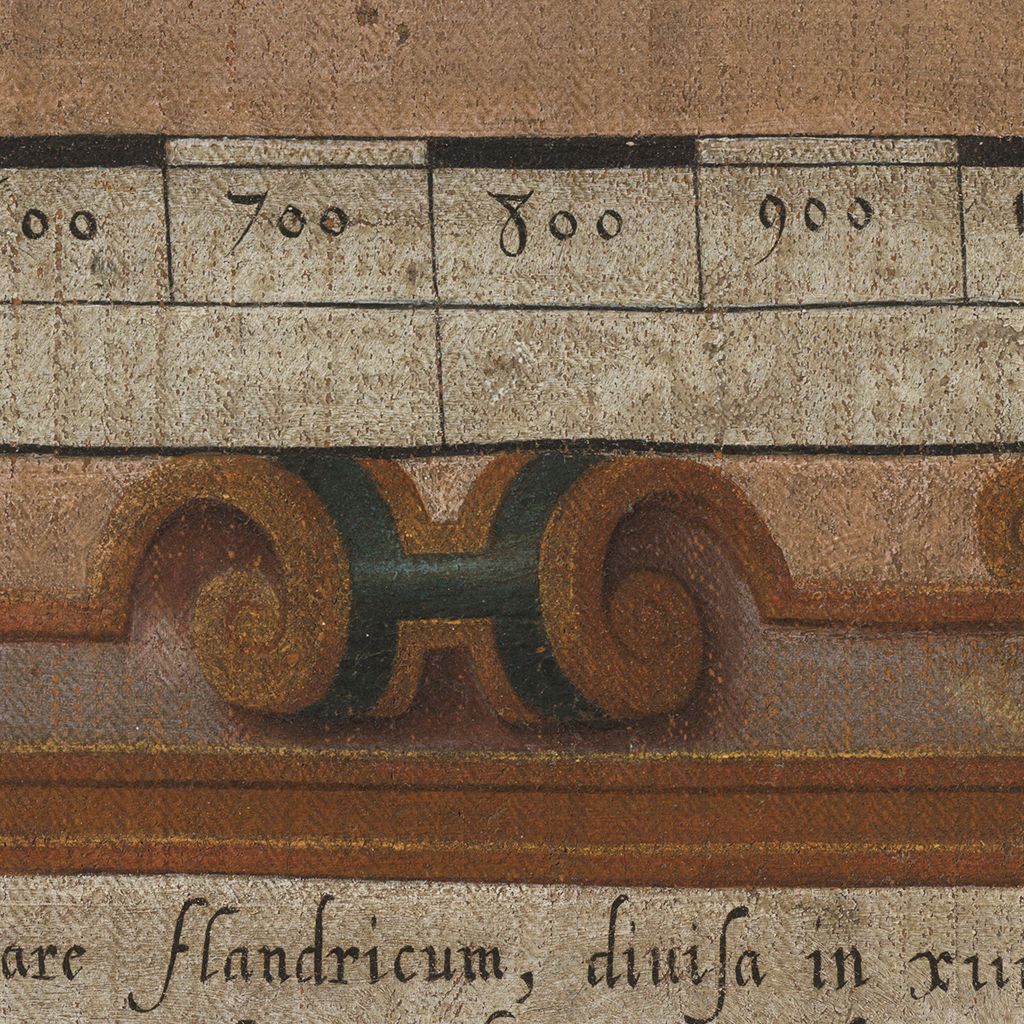 00 700 800 900
are flandricum, diuiſa in